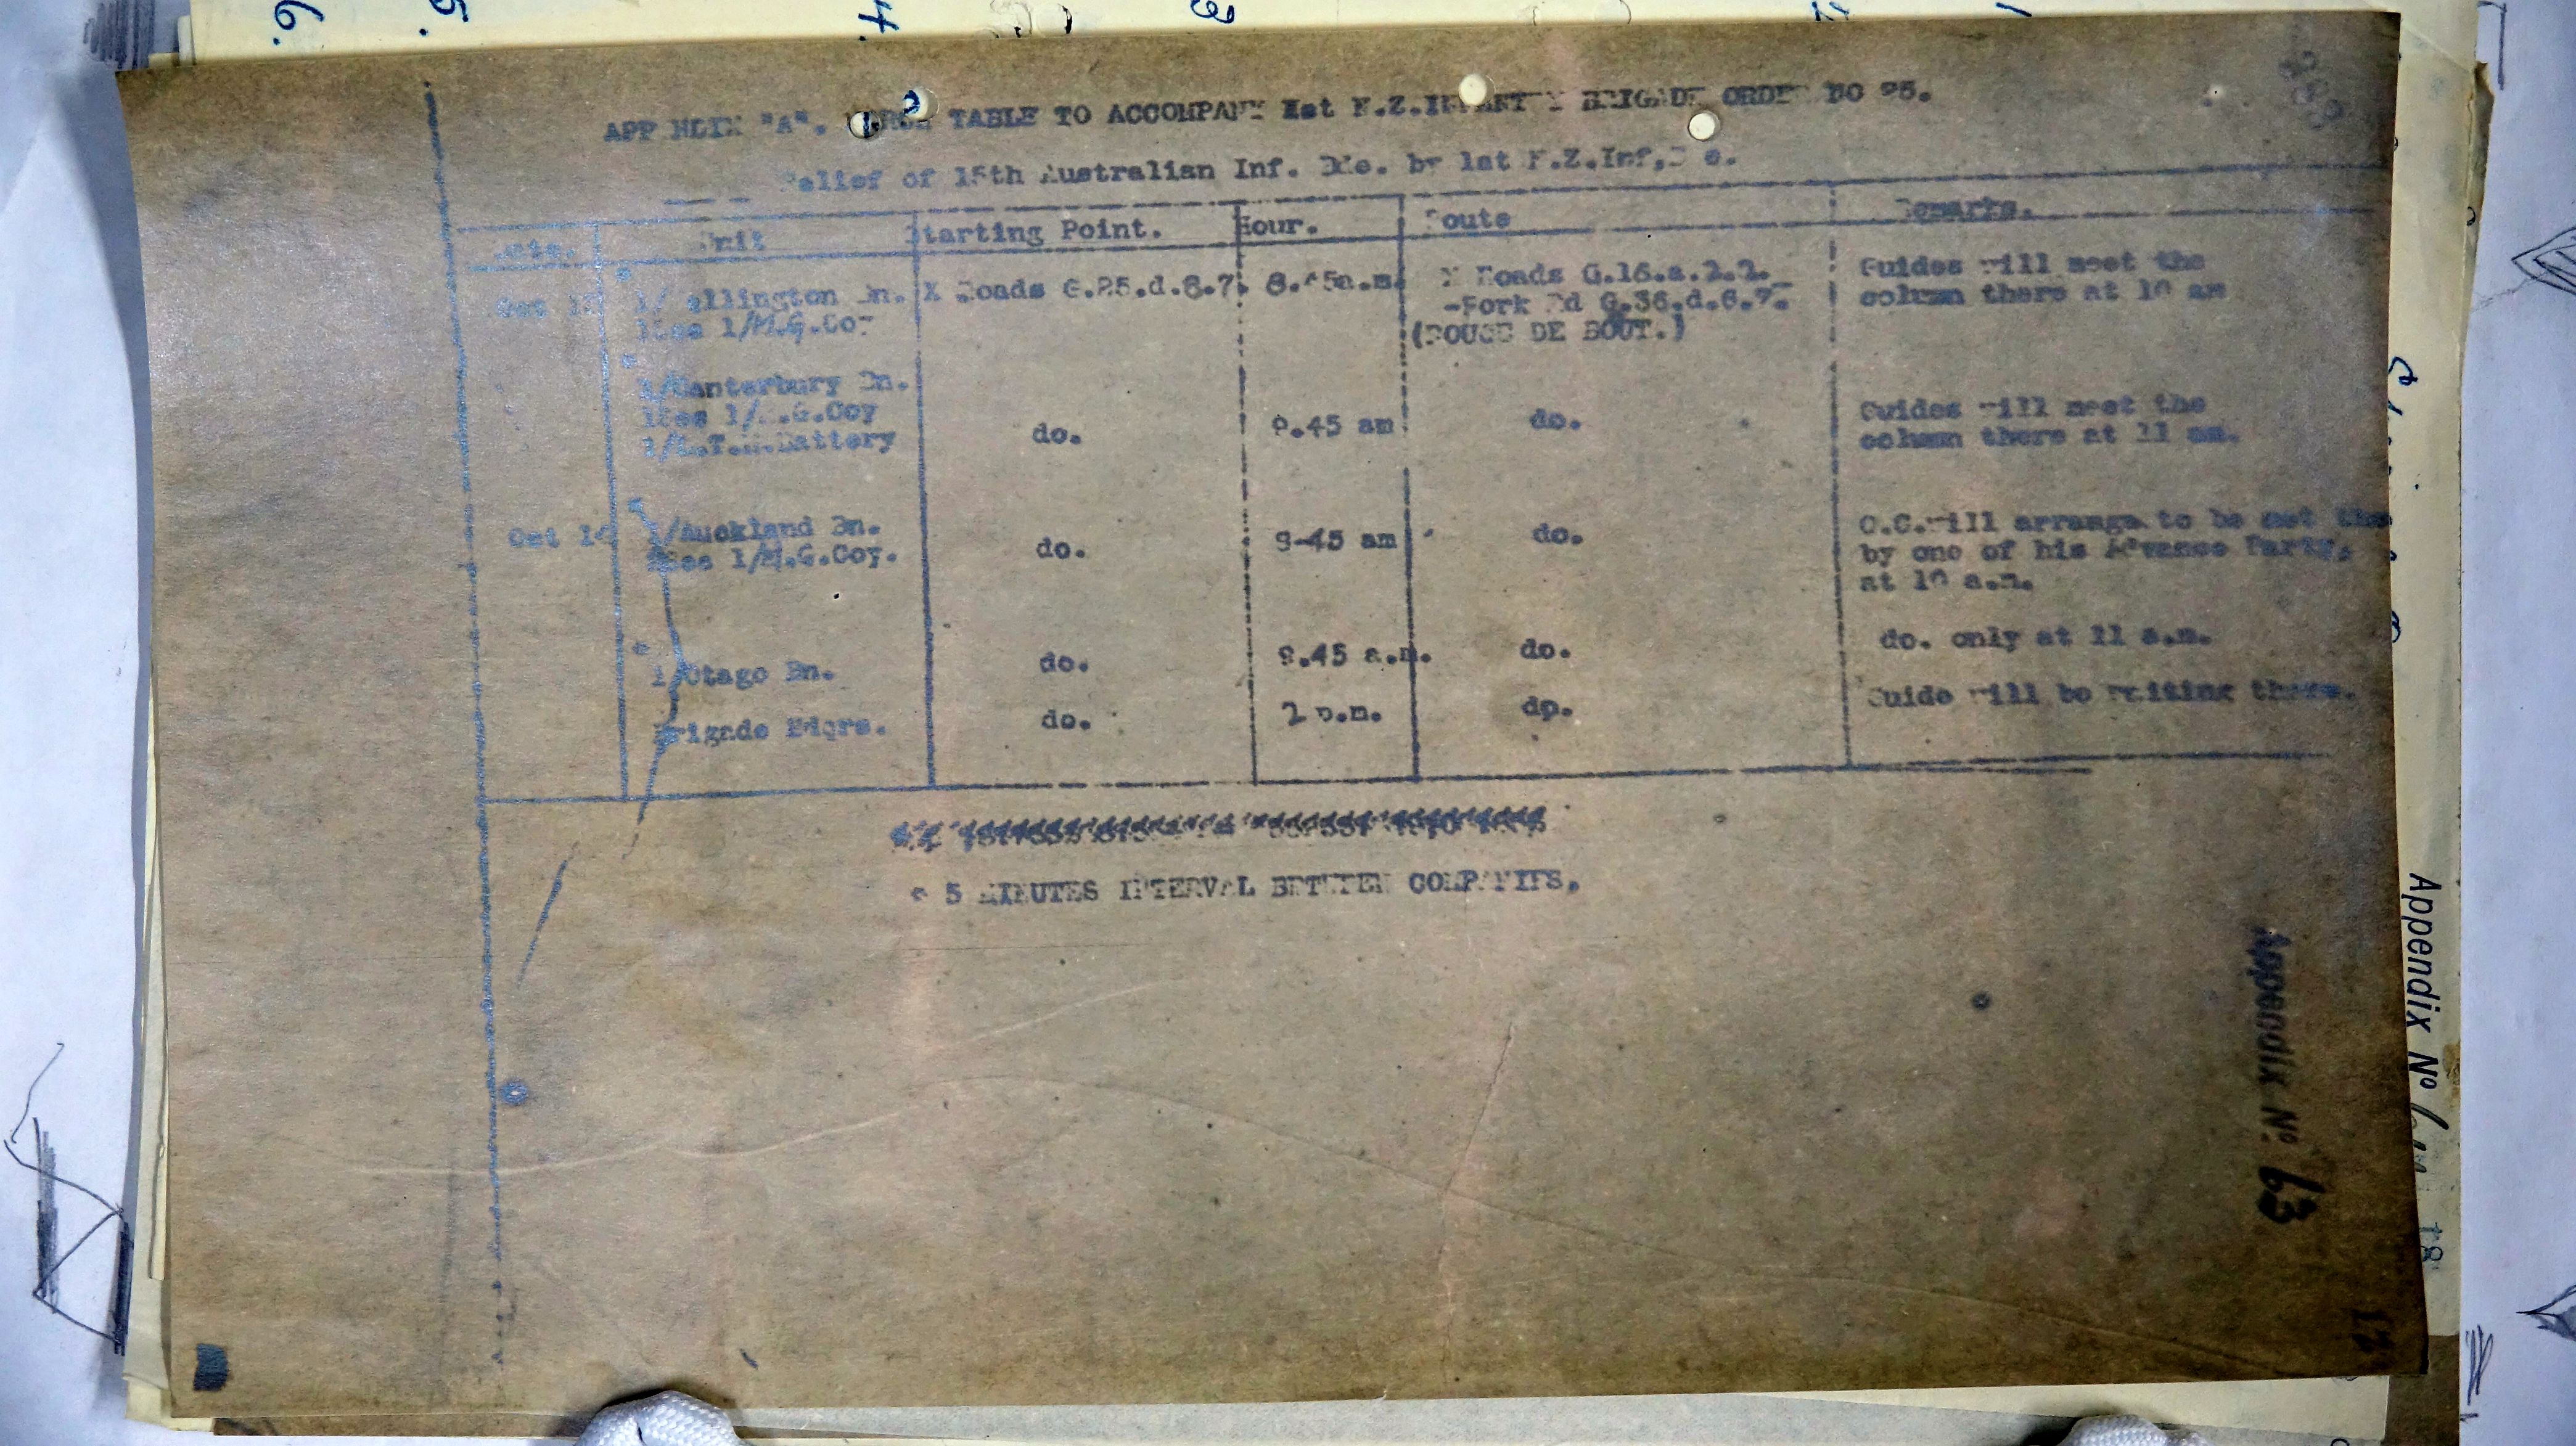 APPENDIX "A". TABLE TO ACCOMPANY 1st N.Z.INFANTRY BRIGADE ORDER NO 25.
Relief of 15th Australian Inf. Bde. by 1st N.Z.Inf,Bde.
Date. Unit Starting Point. Hour. Route Remarks.
Oct 1/Wellington Bn. X Roads G.25.d.8.7. 8.45a.m. X Roads G.16.a.2.2. Guides will meet the
1Sec 1/M.G.Coy -Fork Rd G.36.d.6.7. column there at 10 am
(ROUGE DE BOUT.)
1/Canterbury Bn.
1Sec 1/M.G.Coy do. 9.45 am do. Guides will meet the
1/L.T.M.Battery column there at 11 am.
Oct 1/Auckland Bn. do. 9-45 am do. O.C.will arrange to be met
2Sec 1/M.G.Coy. by one of his Advance Party,
at 10 a.m.
1/Otago Bn. do. 9.45 a.m. do. do. only at 11 a.m.
Brigade Hdqrs. do. 2 p.m. dp. Guide will be waiting there.
* 5 MINUTES INTERVAL BETWEEN COMPANIES.
Appendix Nº 63
Appendix Nº
6.
5.
4.
3